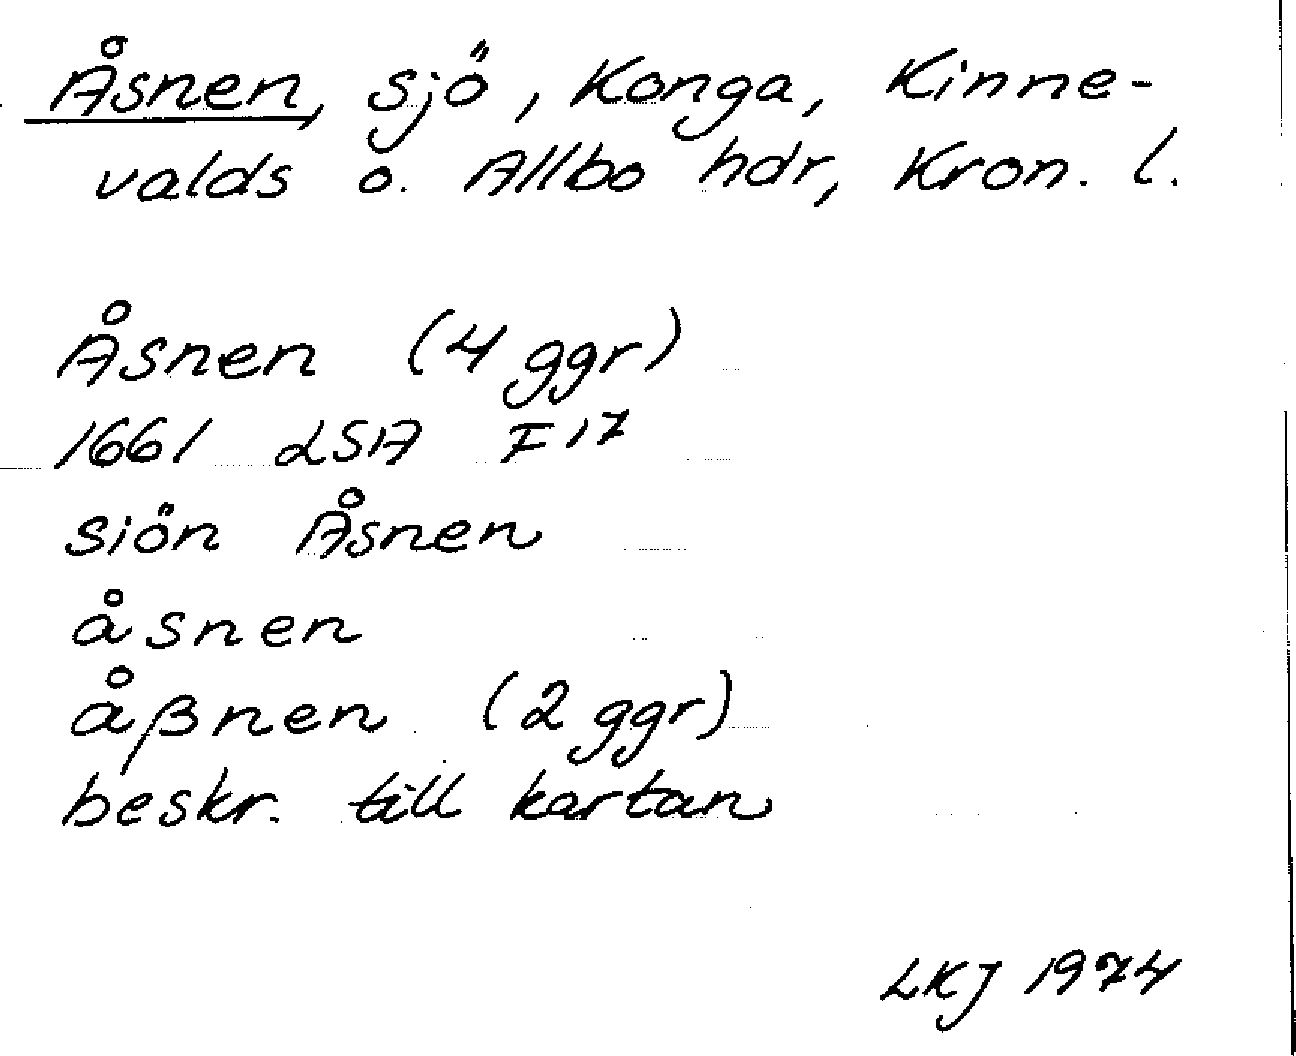 Åsnen, sjö, Konga, Kinne-
valds o. Allbo hdr, Kron. l.
Åsnen (4 ggr)
1661 LSA F17
siön Åsnen
åsnen
åßnen (2 ggr)
beskr. till kartan
LKJ 1974